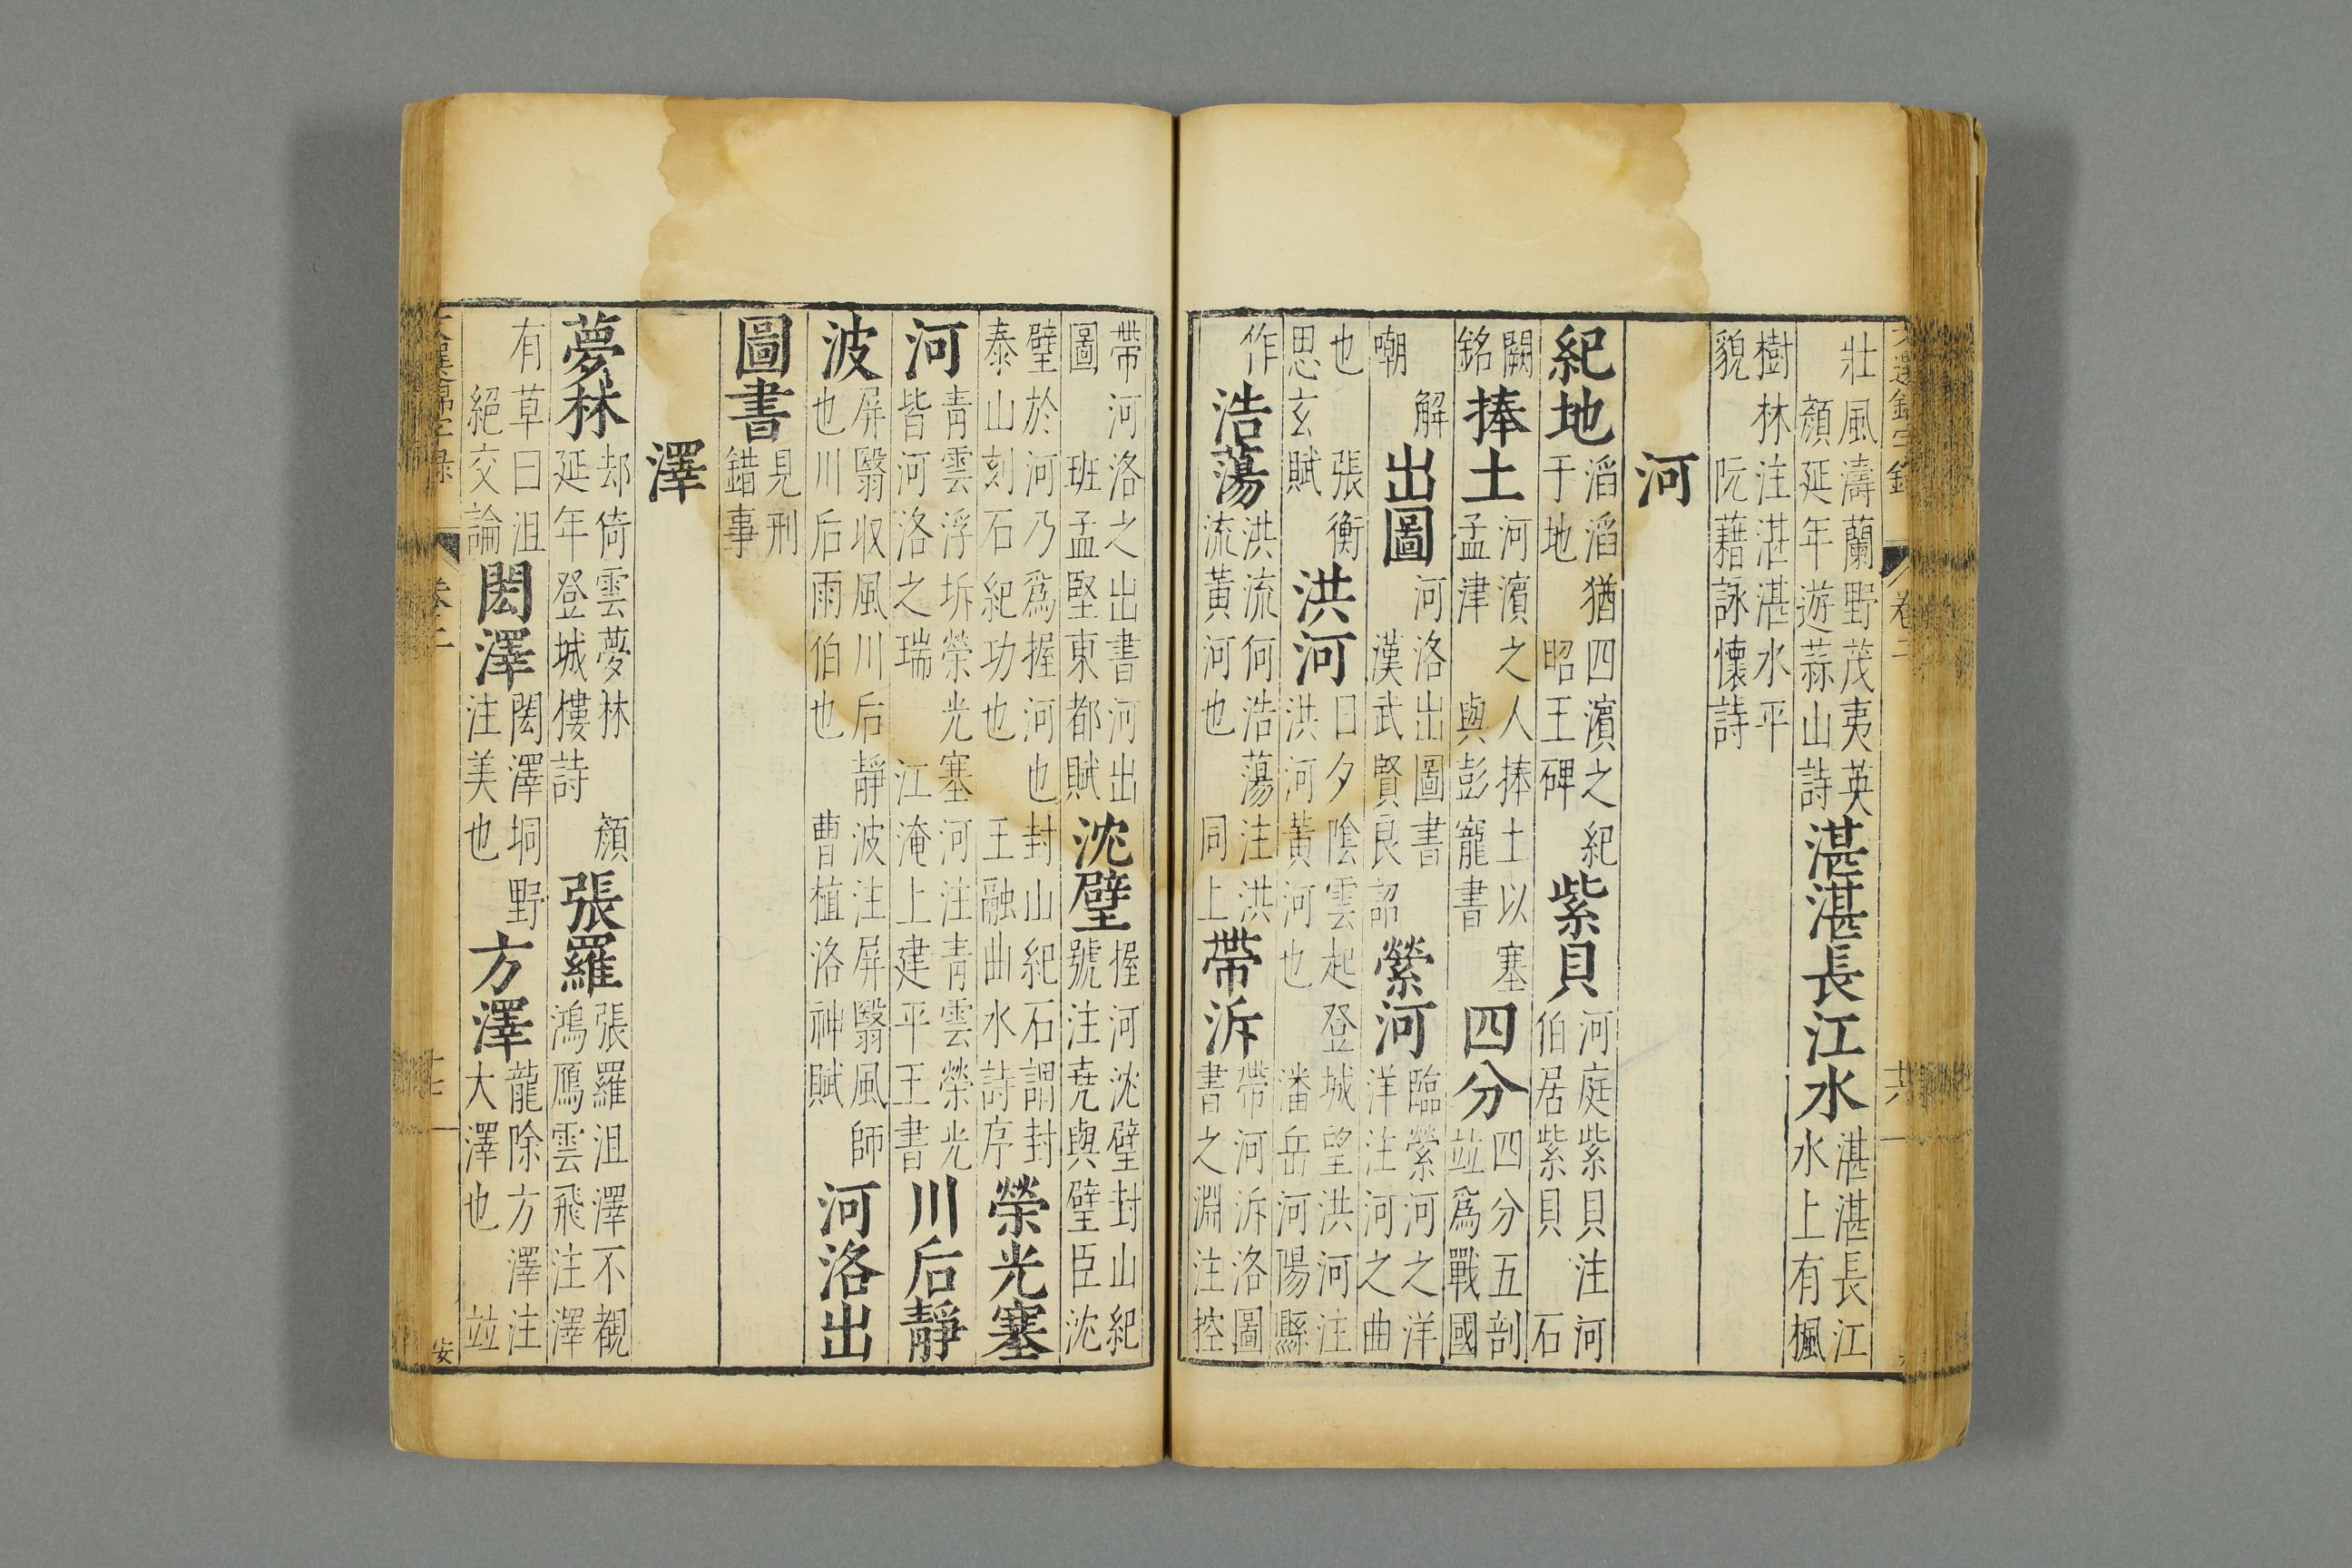 卷二
壯風濤蘭野茂夷英
顏延年遊蒜山詩
湛湛長江水
湛湛長江
水上有楓
樹林注湛湛水平
貌 阮藉詠懷詩
河
紀地
滔滔猶四濱之紀
于地 昭王碑
紫貝
河庭紫貝注河
伯居紫貝 石
闕
銘
捧土
河濱之人捧土以塞
孟津 與彭寵書
四分
四分五剖
竝爲戰國
解
嘲
出圖
河洛出圖書
漢武賢良詔
縈河
臨縈河之洋
洋注河之曲
也 張衡
思玄賦
洪河
日夕陰雲起登城望洪河注
洪河黃河也 潘岳河陽縣
作
浩蕩
洪流何浩蕩注洪
流黃河也 同上
帶泝
帶河泝洛圖
書之淵注控
帶河洛之出書河出
圖 班孟堅東都賦
沈璧
握河沈璧封山紀
號注堯與璧臣沈
璧於河乃爲握河也封山紀石謂封
泰山刻石紀功也 王融曲水詩序
榮光塞
河
青雲浮坼榮光塞河注青雲榮光
皆河洛之瑞 江淹上建平王書
川后靜
波
屏翳収風川后靜波注屏翳風師
也川后雨伯也 曹植洛神賦
河洛出
圖書
見刑
錯事
澤
夢林
却倚雲夢林 顏
延年登城樓詩
張羅
張羅沮澤不觀
鴻鴈雲飛注澤
有草曰沮
絕交論
閎澤
閎澤坰野
注美也
方澤
龍除方澤注
大澤也 竝
安